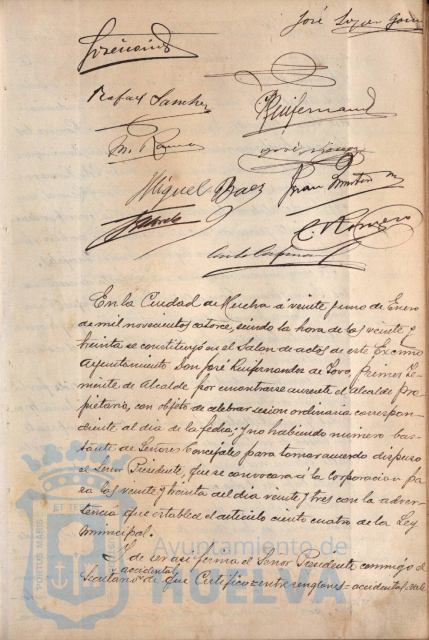 José López Gómez
Rafael Sanchez
Ruifernand
M. Romero
José
Miguel Baez
Juan
C. Romero
En la Ciudad de Huelva á veinte y uno de Enero
de mil novecientos catorce, siendo la hora de las veinte y
treinta se constituyó en el Salon de actos de este Excmo
Ayuntamiento Don José Ruifernandez de Toro, primer Te-
niente de Alcalde por encontrarse ausente el Alcalde pro-
pietario, con objeto de celebrar sesion ordinaria correspon-
diente al día de la fecha; y no habiendo número bas-
tante de Señores Concejales para tomar acuerdo dispuso
el Señor Presidente, que se convocara á la Corporacion pa-
ra las veinte y treinta del dia veinte y tres con la adver-
tencia que establece el articulo ciento cuatro de la Ley
municipal.
Y de ser asi firma el Señor Presidente conmigo el
accidental
Secretario de que Certifico = entre renglones = accidental = vale
Ayuntamiento de
HUELVA
PORTUS MARIS ET TE